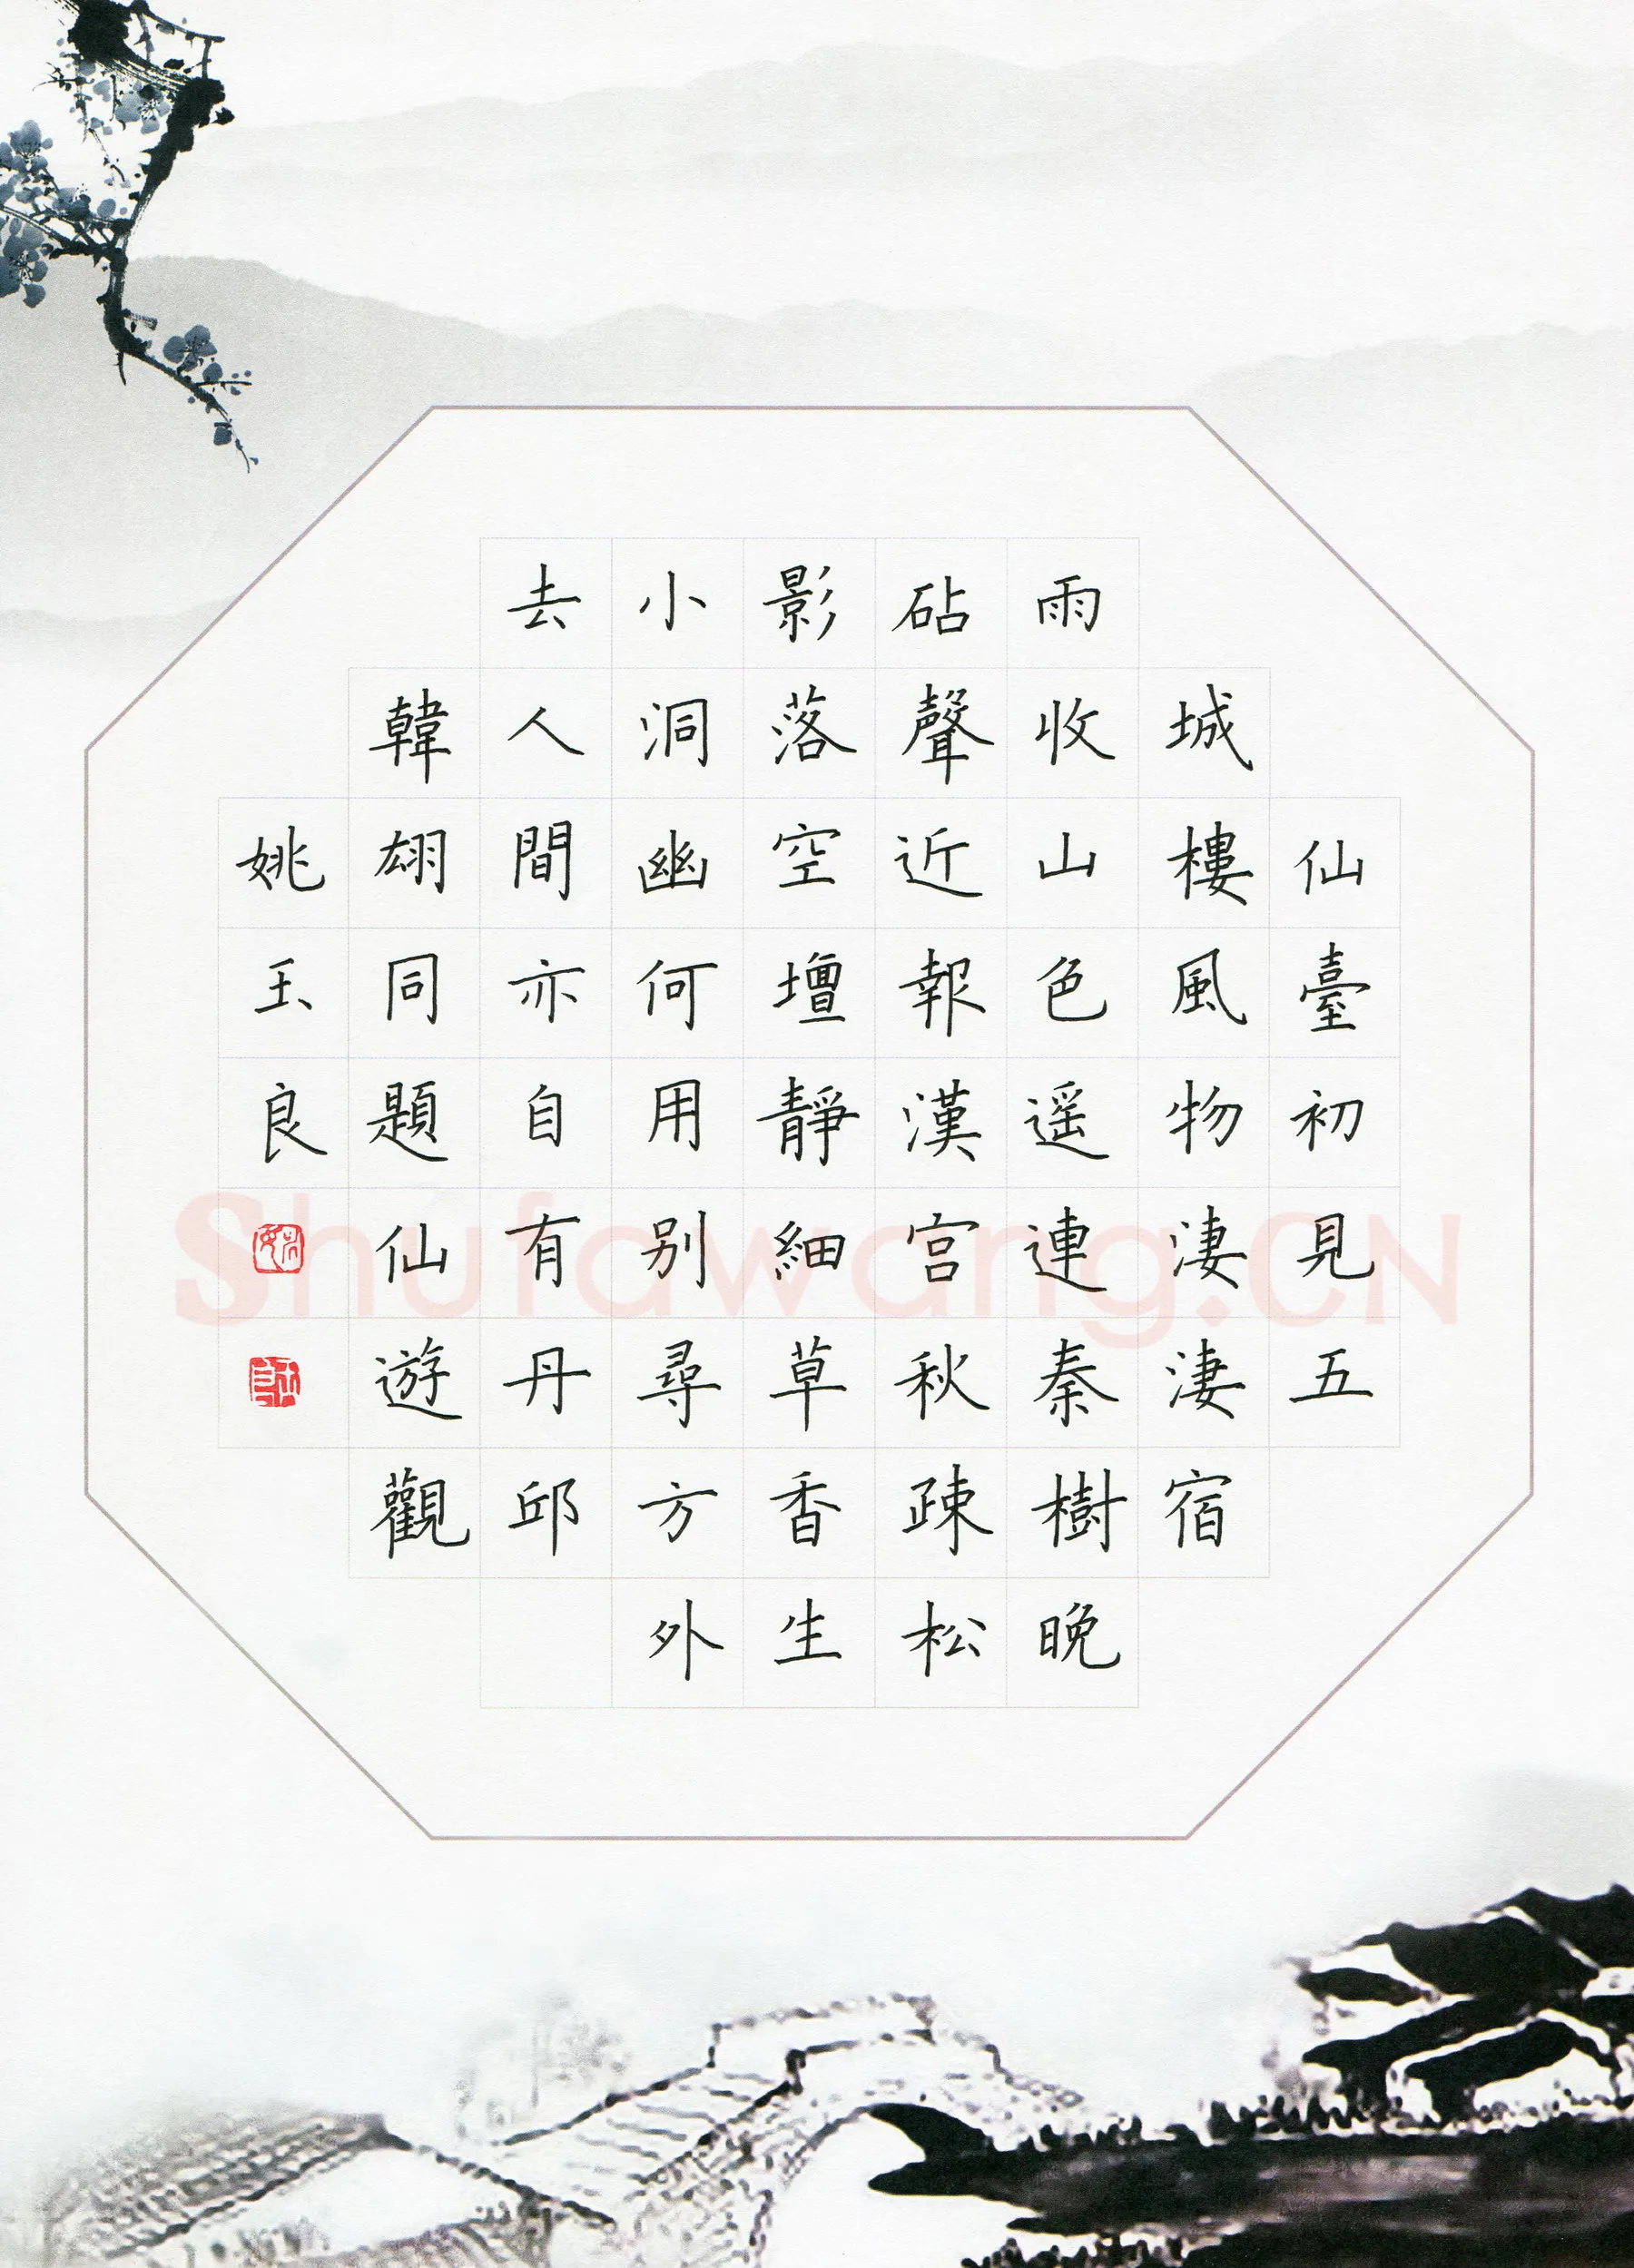 仙臺初見五
城樓風物淒淒宿
雨收山色遥連秦樹晚
砧聲近報漢宫秋疎松
影落空壇靜細草香生
小洞幽何用别尋方外
去人間亦自有丹邱
韓翃同題仙遊觀
姚玉良
Shufawang.CN